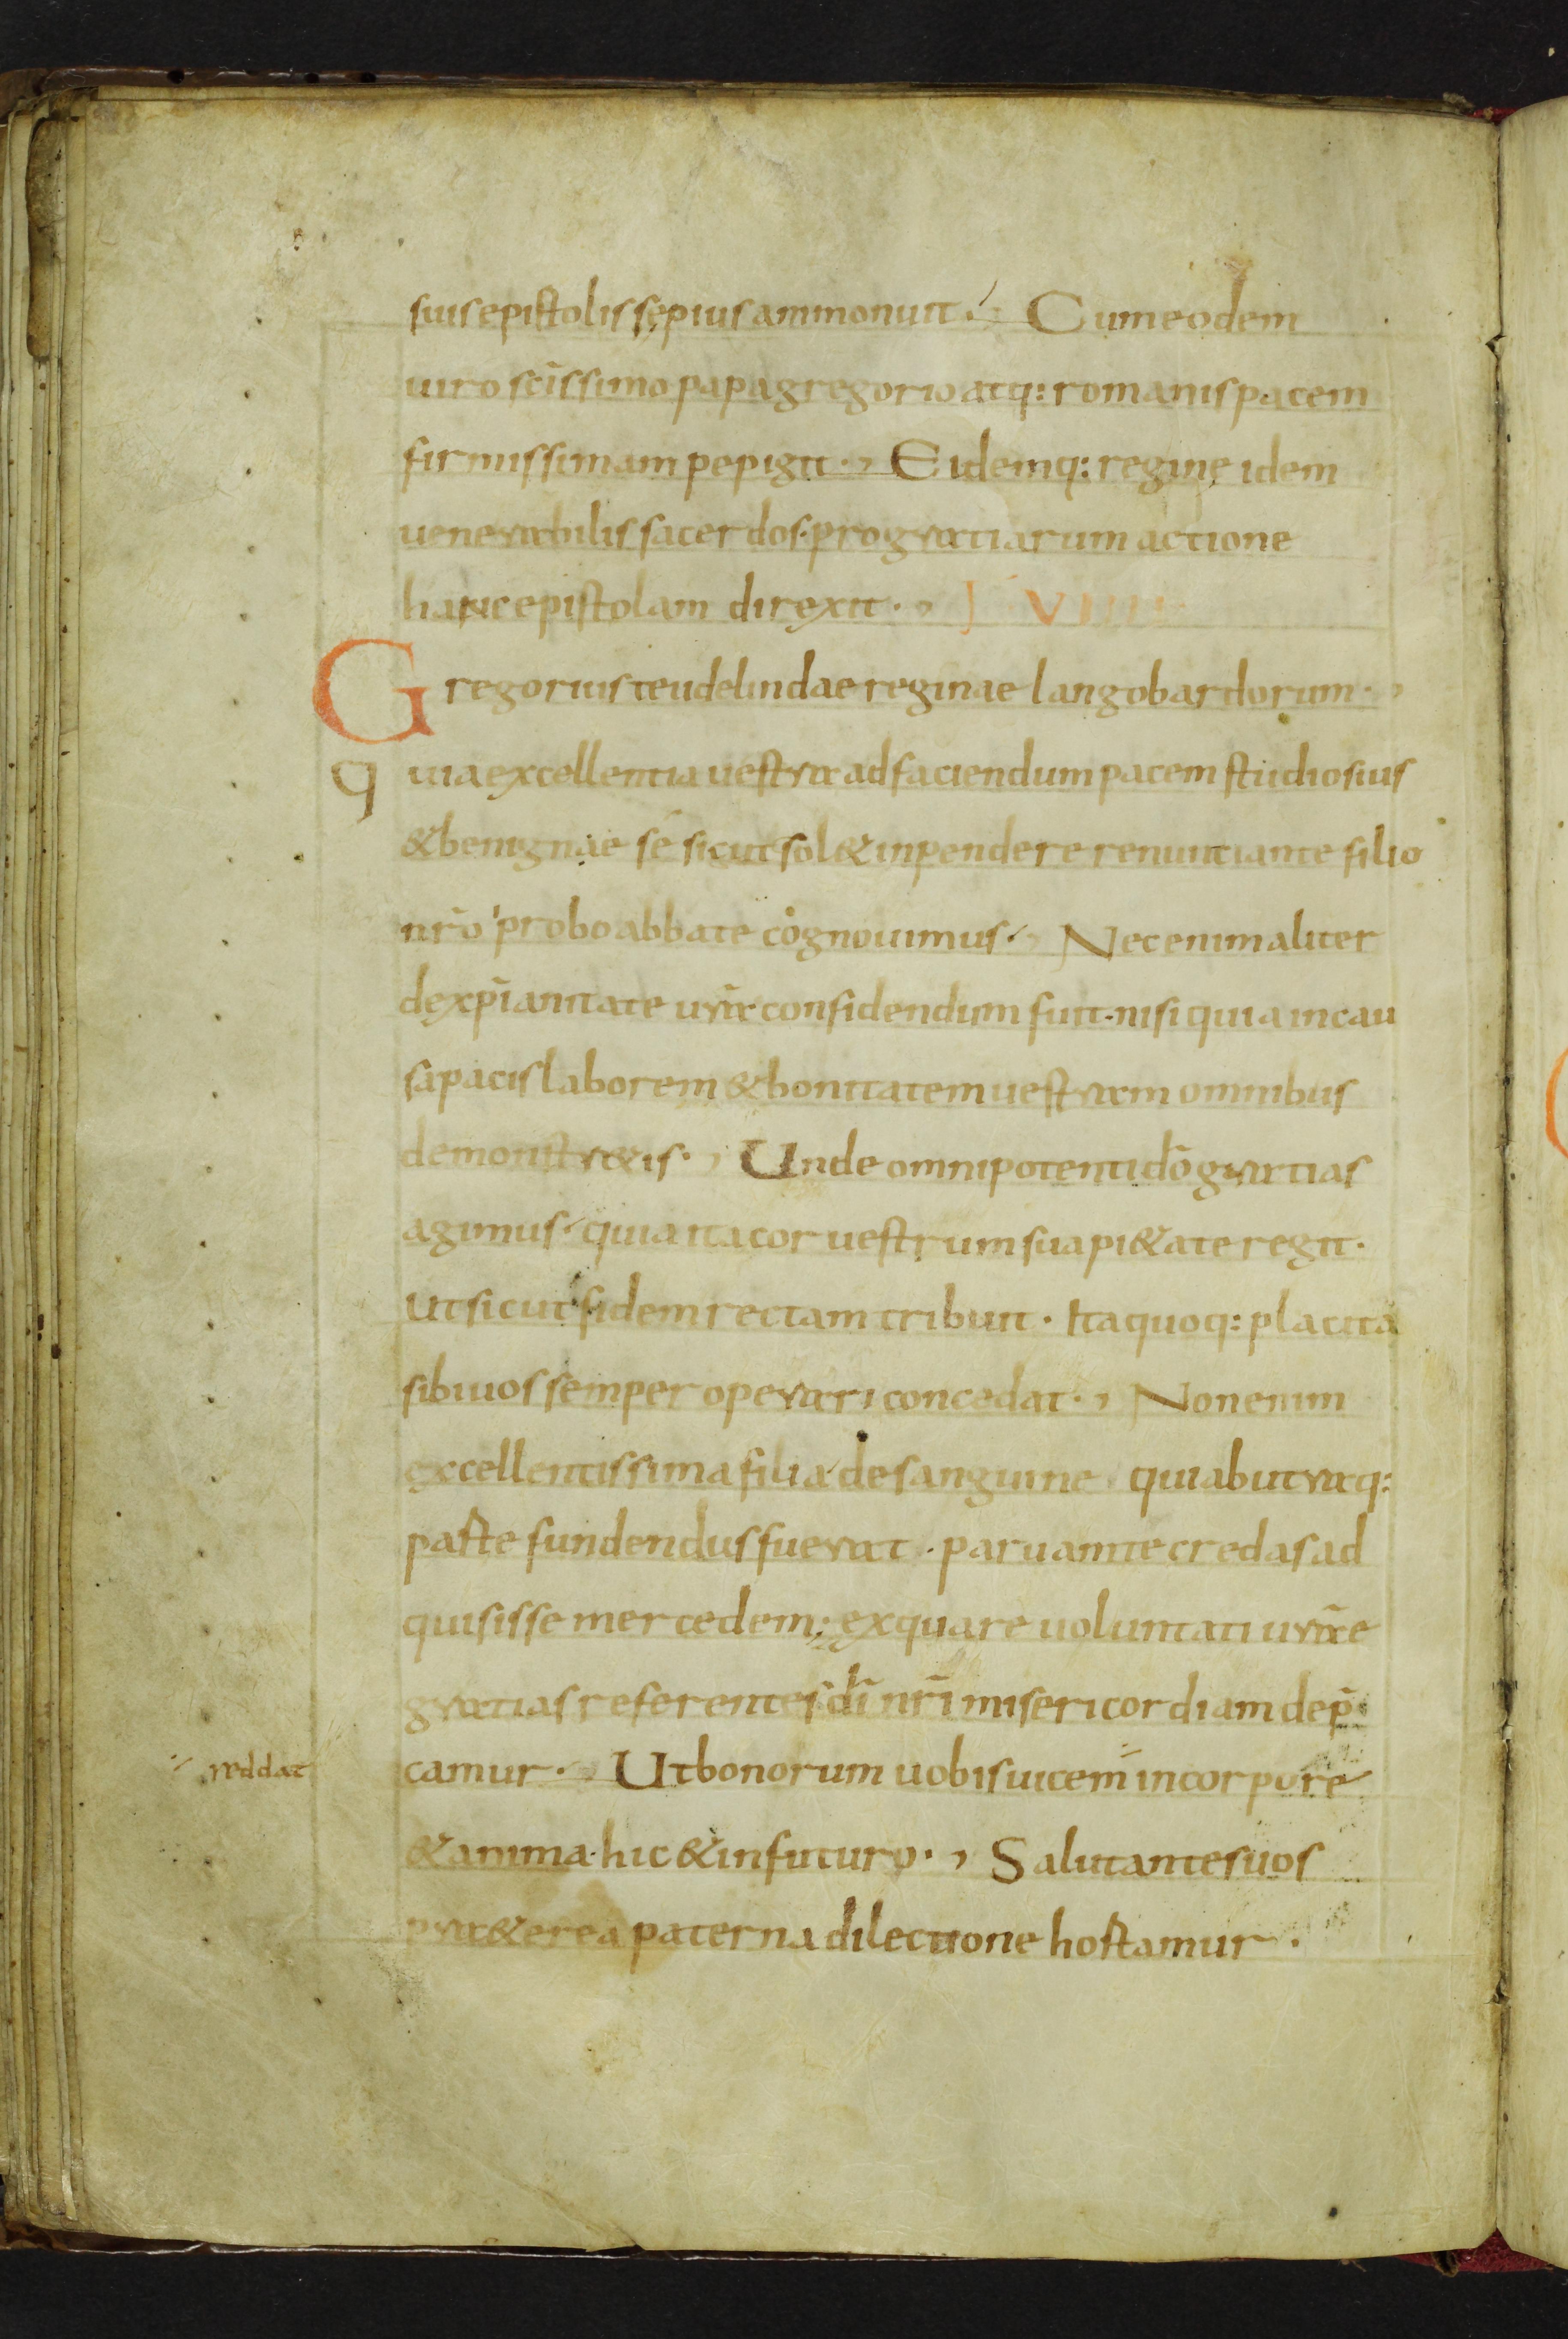 suis epistolis sepius ammonuit. Cum eodem
uiro scissimo papa gregorio atq: romanis pacem
firmissimam pepigit. Eidemq: reginę idem
uenerabilis sacerdos. pro gratiarum actione
hanc epistolam direxit. VIIII
Gregorius teudelindae reginae langobardorum.
Quia excellentia uestra ad faciendum pacem studiosius
& benignae sé sicut sol& inpendere renuntiante filio
nr̄o probo abbate cognouimus. Nec enim aliter
de xp̄ianitate ur̄a confidendum fuit. nisi quia in cau
sa pacis laborem & bonitatem uestram omnibus
demonstr&is. Unde omnipotenti dō gratias
agimus. quia ita cor uestrum sua pi&ate regit.
Ut sicut fidem rectam tribuit. Ita quoq: placita
sibi uos semper operari concedat. Non enim
excellentissima filia de sanguine qui ab utraq:
parte fundendus fuerat. paruam te credas ad
quisisse mercedem. ex qua re uoluntati ur̄ae
gratias referentes dī nr̄i misericordiam dep̄
reddat
camur. Ut bonorum uobis uicem in corpore
& anima. hic & in futuro. Salutantes uos
pra&erea paterna dilectione hortamur.